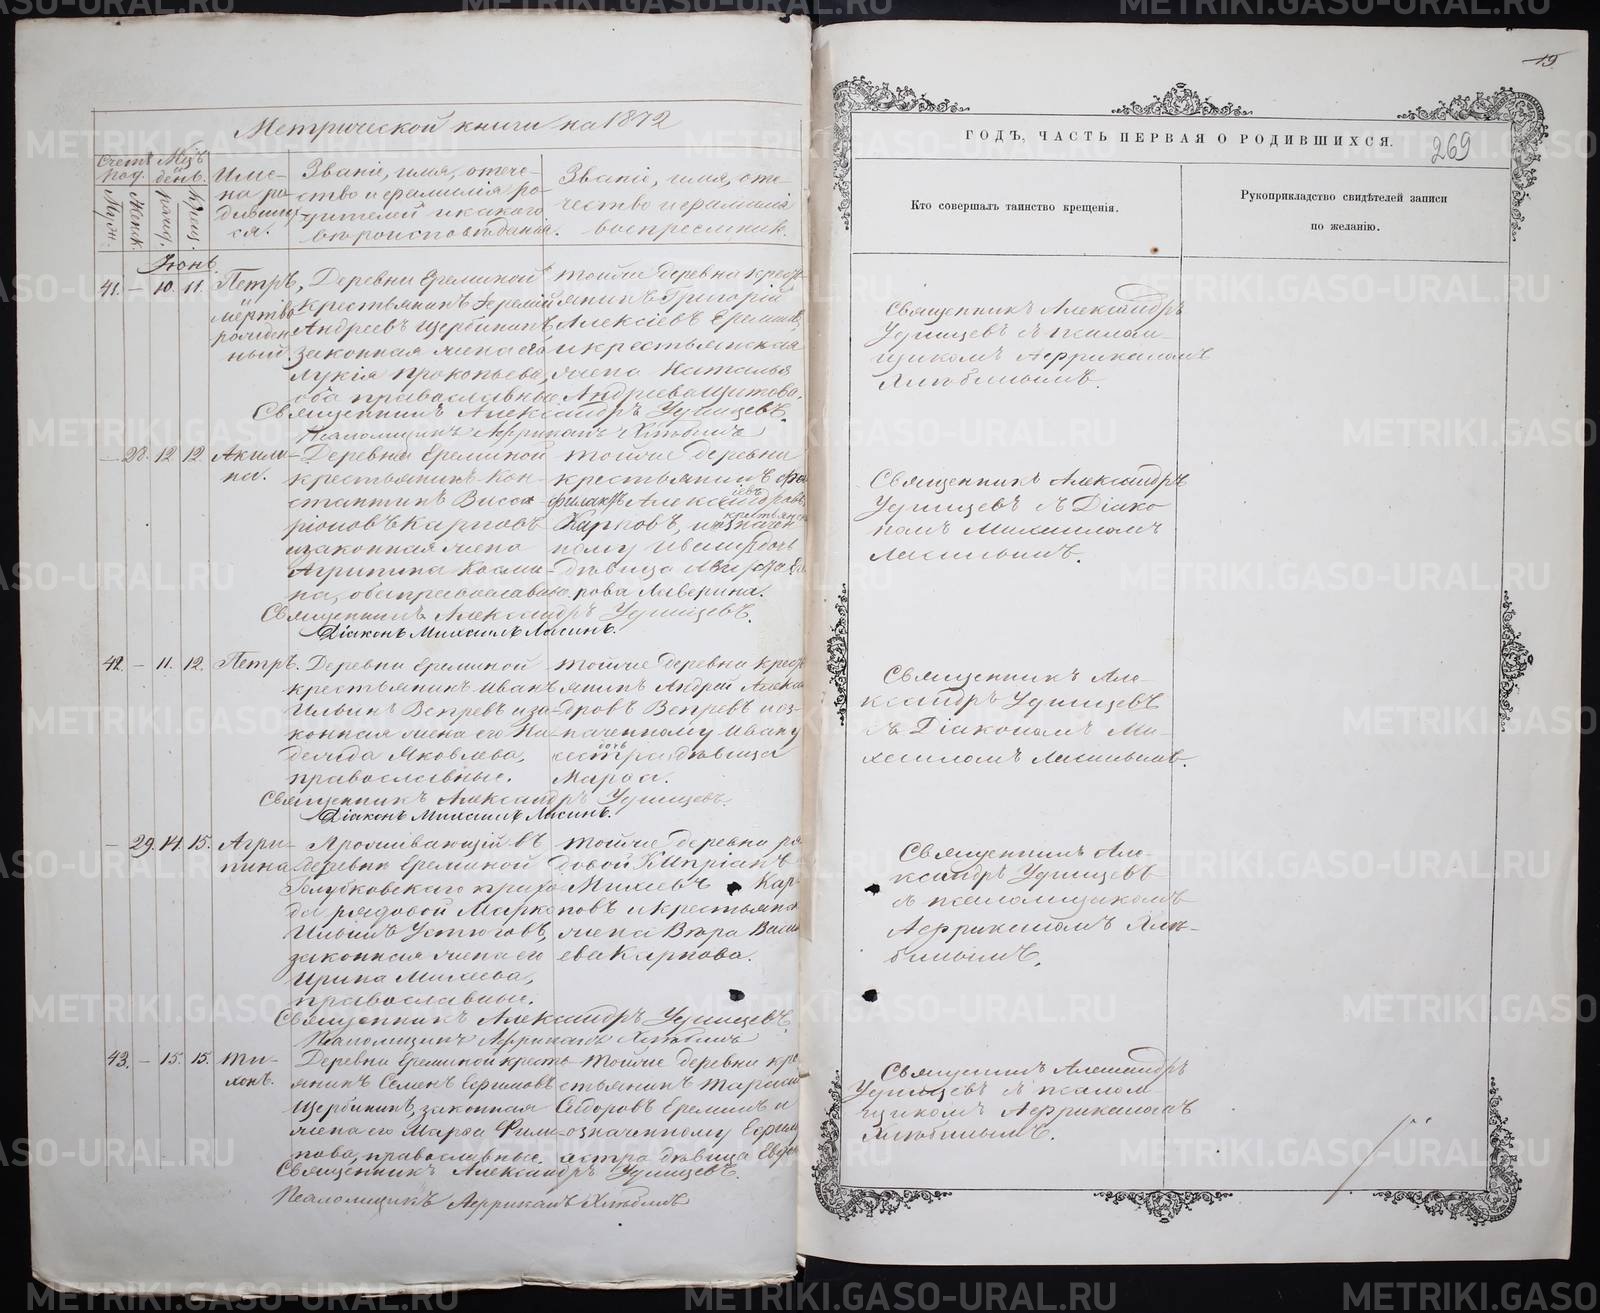 Метрической книги на 1872
Счетъ род.
Мѣс. день.
Муж.
Женск.
рожд.
крещ.
Име-
на ро-
дивших-
ся.
Званіе, имя, отече-
ство и фамилія ро-
дителей и какого
вѣроисповѣданія.
Званіе, имя, оте-
чество и фамилія
воспріемник.
Іюнь.
41. — 10. 11. Петръ,
мертво
рожден
ный.
Деревни Ереминой
крестьянинъ Іеремій
Андреевъ Щербининъ
законная жена его
Лукія Прокопьева,
оба православные
тойже деревни крест-
янинъ Григорій
Алексіевъ Ереминъ,
и крестьянская
жена Наталья
Андреева Щитова.
Священникъ Александръ Удинцевъ.
Псаломщикъ Африканъ Хлыбинъ
— 28. 12. 12. Акили-
на.
Деревни Ереминой
крестьянинъ Кон-
стантинъ Висса-
ріоновъ Карповъ
и законная жена
Агрипина Косми-
на, оба православные
тойже деревни
крестьянинъ
Карповъ,
дѣвица
Священникъ Александръ Удинцевъ.
Діаконъ Михаилъ Ласинъ.
42. — 11. 12. Петръ.
Деревни Ереминой
крестьянинъ Иванъ
Ильинъ Вепревъ и за-
конная жена его На-
дежда Яковлева,
православные.
тойже деревни крест-
янинъ Андрей Алекса-
дровъ Вепревъ и оз-
наченному Ивану
дочь
сестра дѣвица
Марѳа.
Священникъ Александръ Удинцевъ.
Діаконъ Михаилъ Ласинъ.
— 29. 14. 15. Агри-
пина
Проживающій въ
деревни Ереминой
Голубковскаго прихо-
да рядовой Марко
Ильинъ Устюговъ,
законная жена его
Ирина Михеева,
православные.
тойже деревни ря-
довой Кипріанъ
Михеевъ Кар-
повъ и крестьянск
жена Вѣра Васи
ева Карпова.
Священникъ Александръ Удинцевъ
Псаломщикъ Африканъ Хлыбинъ
43. — 15. 15. Ти-
хонъ.
Деревни Ереминой кресть-
янинъ Семенъ Ефимовъ
Щербининъ, законная
жена его Марѳа Фили-
пова, православные.
тойже деревни кре-
стьянинъ Тарасій
Сидоровъ Ереминъ и
означенному Ефим
сестра дѣвица Евдок
Священникъ Александръ Удинцевъ.
Псаломщикъ Африканъ Хлыбинъ
19
ГОДЪ, ЧАСТЬ ПЕРВАЯ О РОДИВШИХСЯ.
269
Кто совершалъ таинство крещенія.
Рукоприкладство свидѣтелей записи
по желанію.
Священникъ Александръ
Удинцевъ съ псалом-
щикомъ Африканомъ
Хлыбинымъ.
Священникъ Александръ
Удинцевъ съ Діако-
номъ Михаиломъ
Ласинымъ.
Священникъ Але-
ксандръ Удинцевъ
съ Діакономъ Ми-
хаиломъ Ласинымъ.
Священникъ Але-
ксандръ Удинцевъ
съ псаломщикомъ
Африканомъ Хлы-
бинымъ.
Священникъ Александръ
Удинцевъ съ псалом
щикомъ Африканомъ
Хлыбинымъ.
METRIKI.GASO-URAL.RU